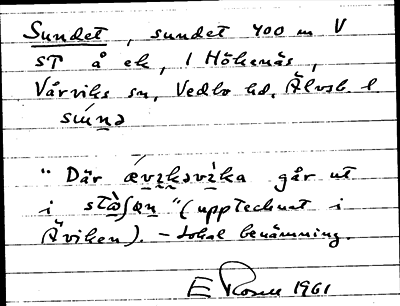 Sundet, sundet 400 m V
ST å ek, i Hökenäs,
Vårviks sn, Vedbo hd, Älvsb. l
súṇə
"Där ǽvɪkəvɪ̀ka går ut
i stàʃæṇ" (upptecknat i
Äviken). - Lokal benämning.
E 1961